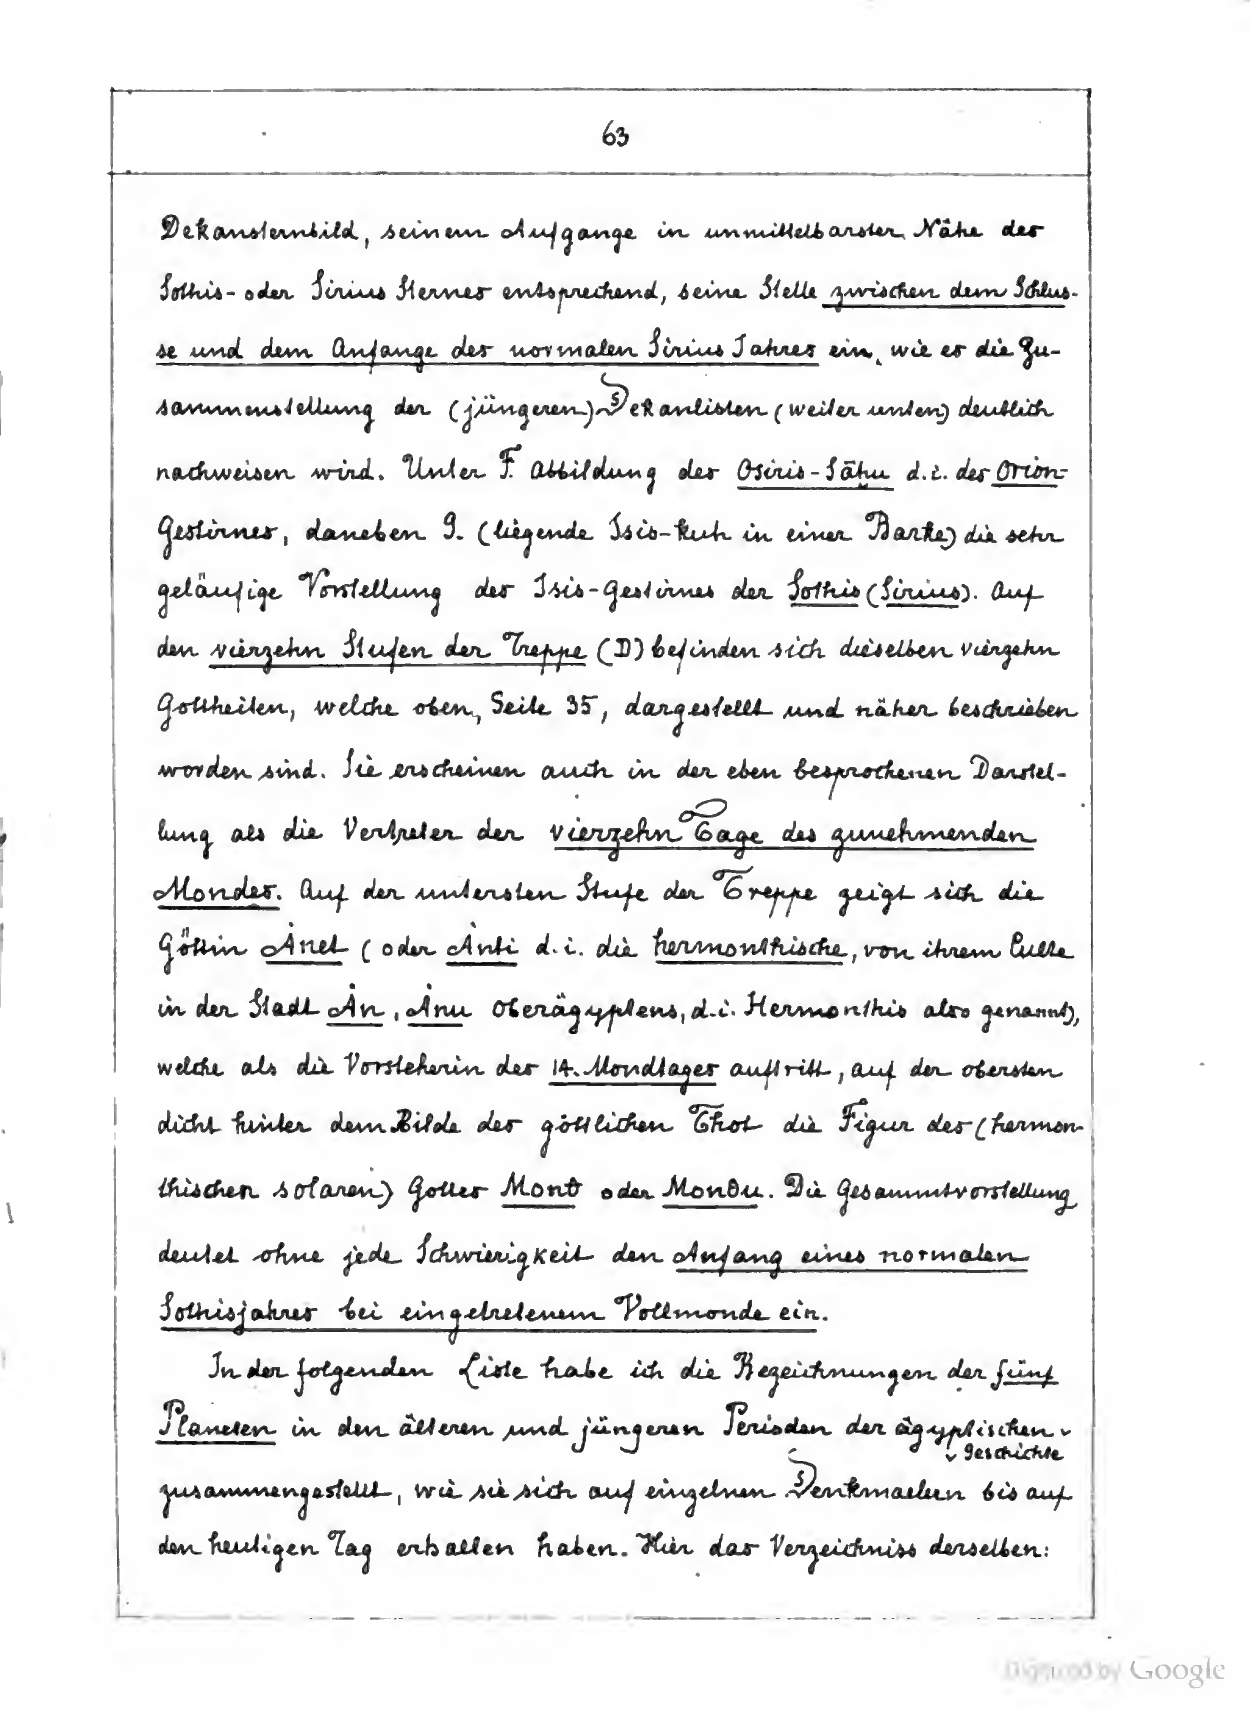 63
Dekansternbild, seinem Aufgange in unmittelbarster Nähe des
Sothis- oder Sirius Sternes entsprechend, seine Stelle zwischen dem Schlus-
se und dem Anfange des normalen Sirius Jahres ein, wie es die Zu-
sammenstellung der (jüngeren) Dekanlisten (weiter unten) deutlich
nachweisen wird. Unter F. Abbildung des Osiris-Sāḥu d.i. des Orion-
Gestirnes, daneben G. (liegende Isis-Kuh in einer Barke) die sehr
geläufige Vorstellung des Isis-Gestirnes der Sothis (Sirius). Auf
den vierzehn Stufen der Treppe (D) befinden sich dieselben vierzehn
Gottheiten, welche oben, Seite 35, dargestellt und näher beschrieben
worden sind. Sie erscheinen auch in der eben besprochenen Darstel-
lung als die Vertreter der vierzehn Tage des zunehmenden
Mondes. Auf der untersten Stufe der Treppe zeigt sich die
Göttin Ȧnet (oder Ȧnti d.i. die hermonthische, von ihrem Culte
in der Stadt Ȧn, Ȧnu Oberägyptens, d.i. Hermonthis also genannt),
welche als die Vorsteherin des 14. Mondtages auftritt, auf der obersten
dicht hinter dem Bilde des göttlichen Thot die Figur des (hermon-
thischen solaren) Gottes Monθ oder Monθu. Die Gesammtvorstellung
deutet ohne jede Schwierigkeit den Anfang eines normalen
Sothisjahres bei eingetretenem Vollmonde ein.
In der folgenden Liste habe ich die Bezeichnungen der fünf
Planeten in den älteren und jüngeren Perioden der ägyptischen
Geschichte
zusammengestellt, wie sie sich auf einzelnen Denkmaelern bis auf
den heutigen Tag erhalten haben. Hier das Verzeichniss derselben:
Digitized by Google